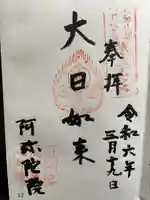 奉拝
令和六年
三月十九日
大日如来
阿弥陀院